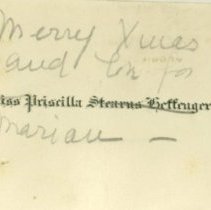 Merry Xmas
and
iss Priscilla Stearns Heffenger
Marian —